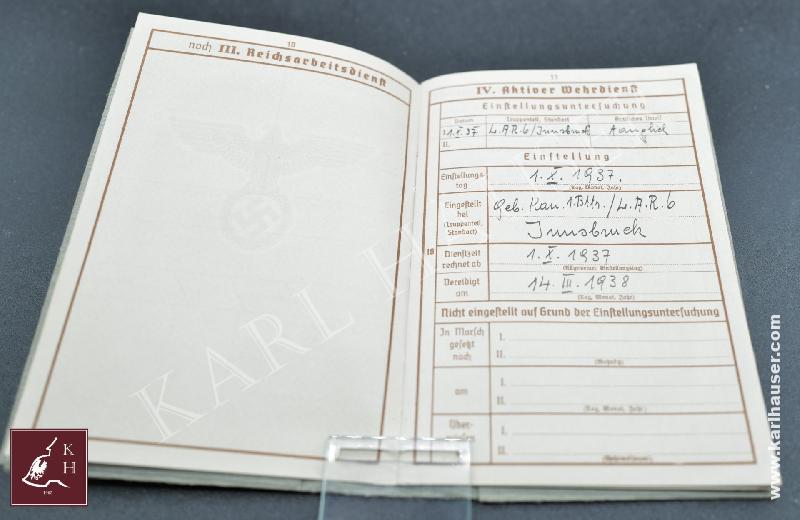 10
noch III. Reichsarbeitsdienst
11
IV. Aktiver Wehrdienst
Einstellungsuntersuchung
Datum Truppenteil, Standort Ärztliches Urteil
I. 1.X.37 L.A.R.6/Innsbruck Tauglich
II.
Einstellung
Einstellungs- 1. X. 1937.
tag (Tag, Monat, Jahr)
Eingestellt Geb. Kan. 1.Bttr./L.A.R.6
bei
(Truppenteil, Innsbruck
Standort)
18 Dienstzeit 1. X. 1937
rechnet ab (Allgemeiner Einstellungstag)
Vereidigt 14. III. 1938
am (Tag, Monat, Jahr)
Nicht eingestellt auf Grund der Einstellungsuntersuchung
In Marsch I.
gesetzt
nach II.
am I.
II.
(Tag, Monat, Jahr)
Über- I.
II.
KARL
www.karlhauser.com
K
H